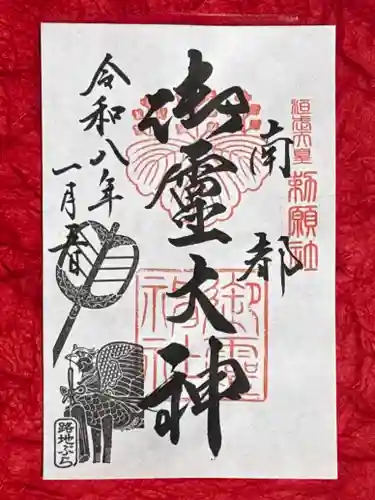 桓武天皇
勅願社
南都
御靈大神
御靈神社
令和八年
一月五日
路地ぶら